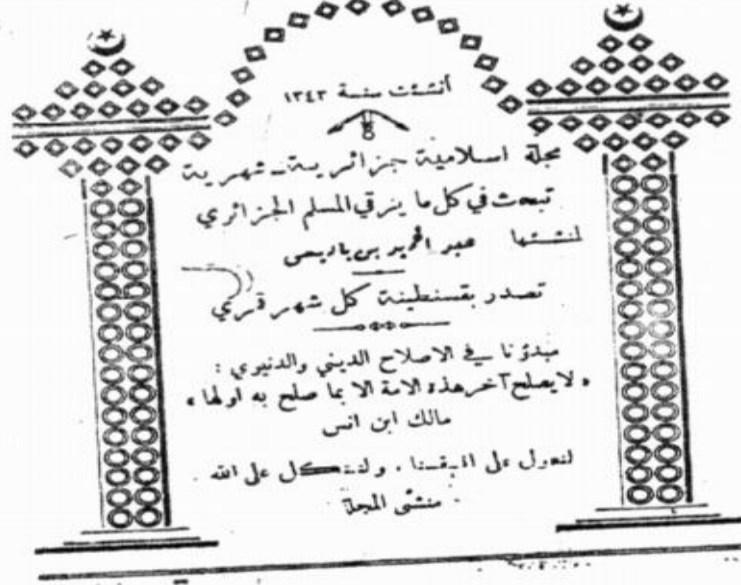 أنشئت سنة ١٣٤٣
مجلة اسلامية جزائرية - شهرية
تبحث في كل ما يرقي المسلم الجزائري
لمنشئها عبد الحميد بن باديس
تصدر بقسنطينة كل شهر قمري
مبدؤنا في الاصلاح الديني والدنيوي :
« لا يصلح آخر هذه الامة الا بما صلح به اولها »
مالك ابن انس
لنعول على انفسنا . ولنتكل على الله
منشئ المجلة